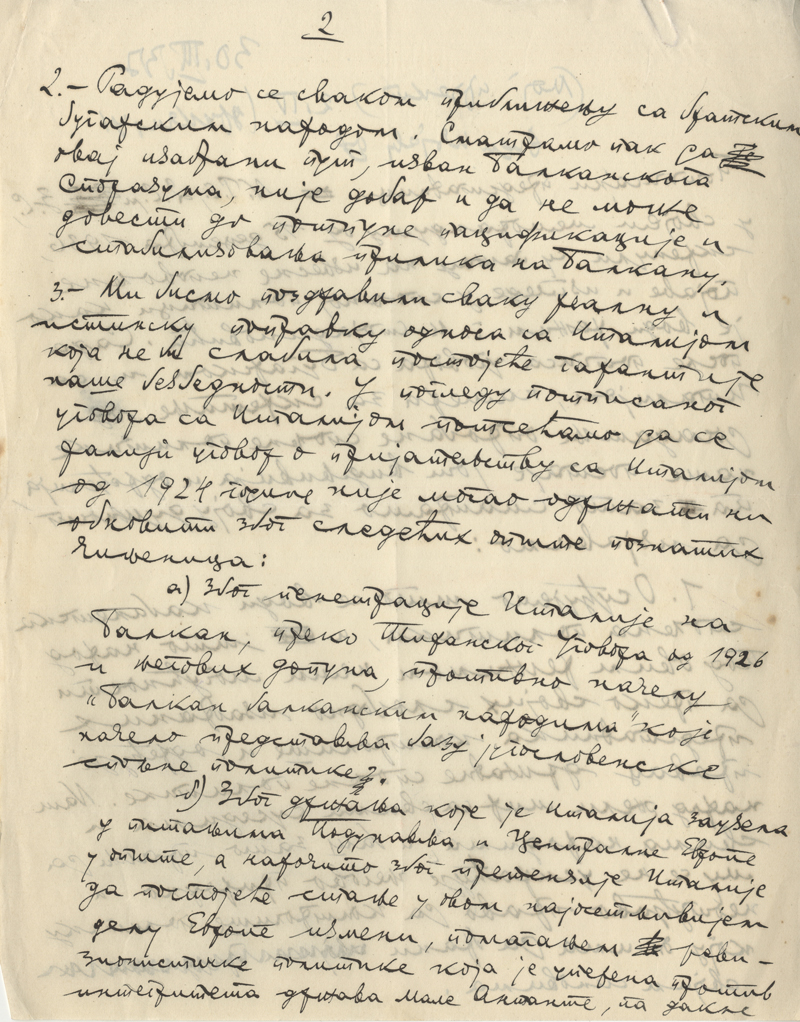 2
2.– Радујемо се сваком приближењу са братским
бугарским народом. Сматрамо пак да
овај изабрани пут, изван Балканскога
Споразума, није добар и да не може
довести до потпуне пацификације и
стабилизовања прилика на Балкану.
3.– Ми бисмо поздравили сваку реалну и
истинску поправку односа са Италијом
која не би слабила постојеће гарантије
наше безбедности. У погледу потписаног
уговора са Италијом потсећамо да се
ранији уговор о пријатељству са Италијом
од 1924 године није могао одржати ни
обновити због следећих опште познатих
чињеница:
а) Због пенетрације Италије на
Балкан, преко Тиранског Уговора од 1926
и његових допуна, противно начелу
„Балкан балканским народима" које
начело представља базу југословенске
спољне политике.
б) Због држања које је Италија заузела
у питањима Подунавља и Централне Европе
у опште, а нарочито због претензије Италије
да постојеће стање у овом најосетљивијем
делу Европе измени, помагањем реви–
зионистичке политике која је уперена против
интегритета држава Мале Антанте, па дакле